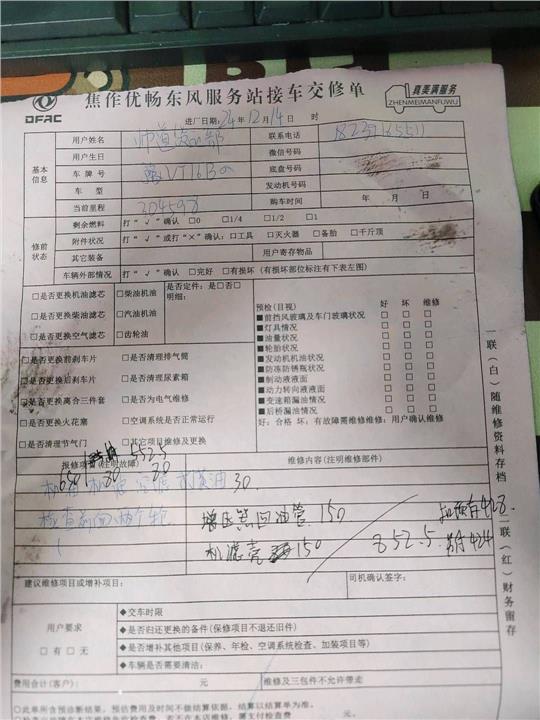 DFAC
焦作优畅东风服务站接车交修单
真美满服务
ZHENMEIMANFUWU
进厂日期: 24年12月14日 时
基本信息
用户姓名
联系电话
用户生日
微信号码
车牌号
底盘号码
车型
发动机号码
当前里程 304598
购车时间 年 月 日
修前状态
剩余燃料 打“√”确认 □0 □1/4 □1/2 □1
附件状况 打“√”或打“×”确认: □工具 □灭火器 □备胎 □千斤顶
其它装备
用户寄存物品
车辆外部情况 打“√”确认 □完好 □有损坏 (有损坏部位标注有下表左图)
□是否更换机油滤芯 □柴油机油
是否定件: 是□否□
明细:
□是否更换柴油滤芯 □汽油机油
□是否更换空气滤芯 □齿轮油
□是否更换前刹车片 □是否清理排气筒
□是否更换后刹车片 □是否清理尿素箱
□是否更换离合三件套 □是否为电气维修
□是否更换火花塞 □空调系统是否正常运行
□是否清理节气门 □其它项目维修及更换
预检(目视) 好 坏 维修
■前挡风玻璃及车门玻璃状况
■灯具情况
■油量状况
■轮胎状况
■发动机机油状况
■防冻防锈瓶状况
■制动液液面
■动力转向液液面
■变速箱漏油情况
■后桥漏油情况
好: 合格 坏: 有故障需维修维修: 用户确认维修
一联(白)随维修资料存档
一联(红)财务留存
报修项目(注明故障)
552.5
维修内容(注明维修部件)
80 20
30
增压器回油管 150
机滤壳 150
852.5
建议维修项目或增补项目:
司机确认签字:
用户要求
□有□无
◆交车时限
◆是否归还更换的备件(保修项目不退还旧件)
◆是否增补其他项目(保养、年检、空调系统检查、加装项目等)
◆车辆是否需要清洁:
费用合计(客户): 元
维修及三包件不允许带走
◇此单所含预诊断结果, 预估费用及时间不做结算依据, 结算以结算单为准。